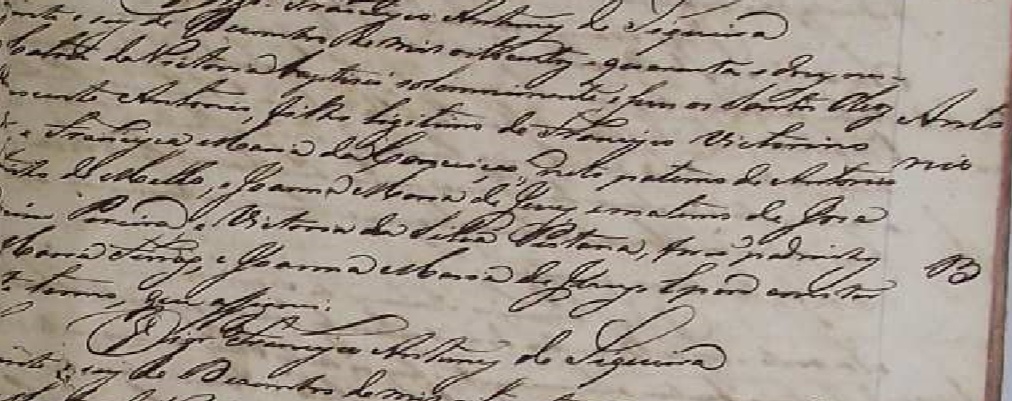 Vigr.º Francisco Antunes de Siqueira
vinte e seis de Dezembro de mil oitocentos e quarenta e dois nes-
Victoria baptizei solemnemente, e puz os Santos Oleos
innocente Antonio, filho legitimo de Francisco Victorino
e Francisca Maria da Conceição, neto paterno de Antonio
de Mello, e Joanna Maria de Jesus, e materno de José
Pereira, e Victoria da Silva, forão padrinhos
Maria e Joanna Maria de Jesus e para constar
termo, que assignei.
O Vigr.º Francisco Antunes de Siqueira
vinte e seis de Dezembro de mil
Anto
nio
B